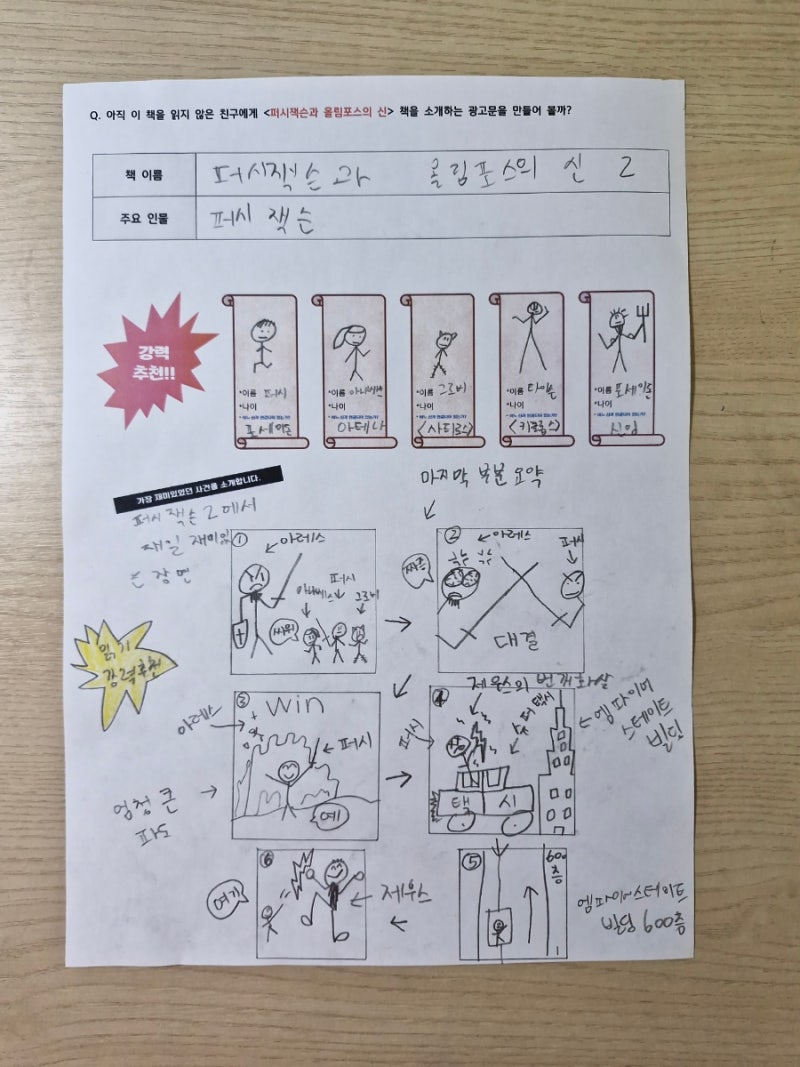 Q. 아직 이 책을 읽지 않은 친구에게 <퍼시잭슨과 올림포스의 신> 책을 소개하는 광고문을 만들어 볼까?
책 이름 퍼시잭슨과 올림포스의 신 2
주요 인물 퍼시 잭슨
강력
추천!!
*이름 퍼시
*나이
포세이돈
*이름 아나베스
*나이
아테나
*이름 그로버
*나이
<사티로스>
*이름 타이슨
*나이
<키클롭스>
*이름 포세이돈
*나이
신임
가장 재미있었던 사건을 소개합니다.
퍼시 잭슨 2에서
재일 재미있
는 장면
마지막 부분 요약
읽기
강력추천
①
아레스
아나베스
퍼시
그로버
싸워
②
아레스
퍼시
대결
③
win
아레스
퍼시
엄청 큰
파도
예
④
제우스의 번개화살
퍼시
택시
엠파이어
스테이트
빌딩
⑤
600
층
1
엠파이어스테이트
빌딩 600층
⑥
여기
제우스